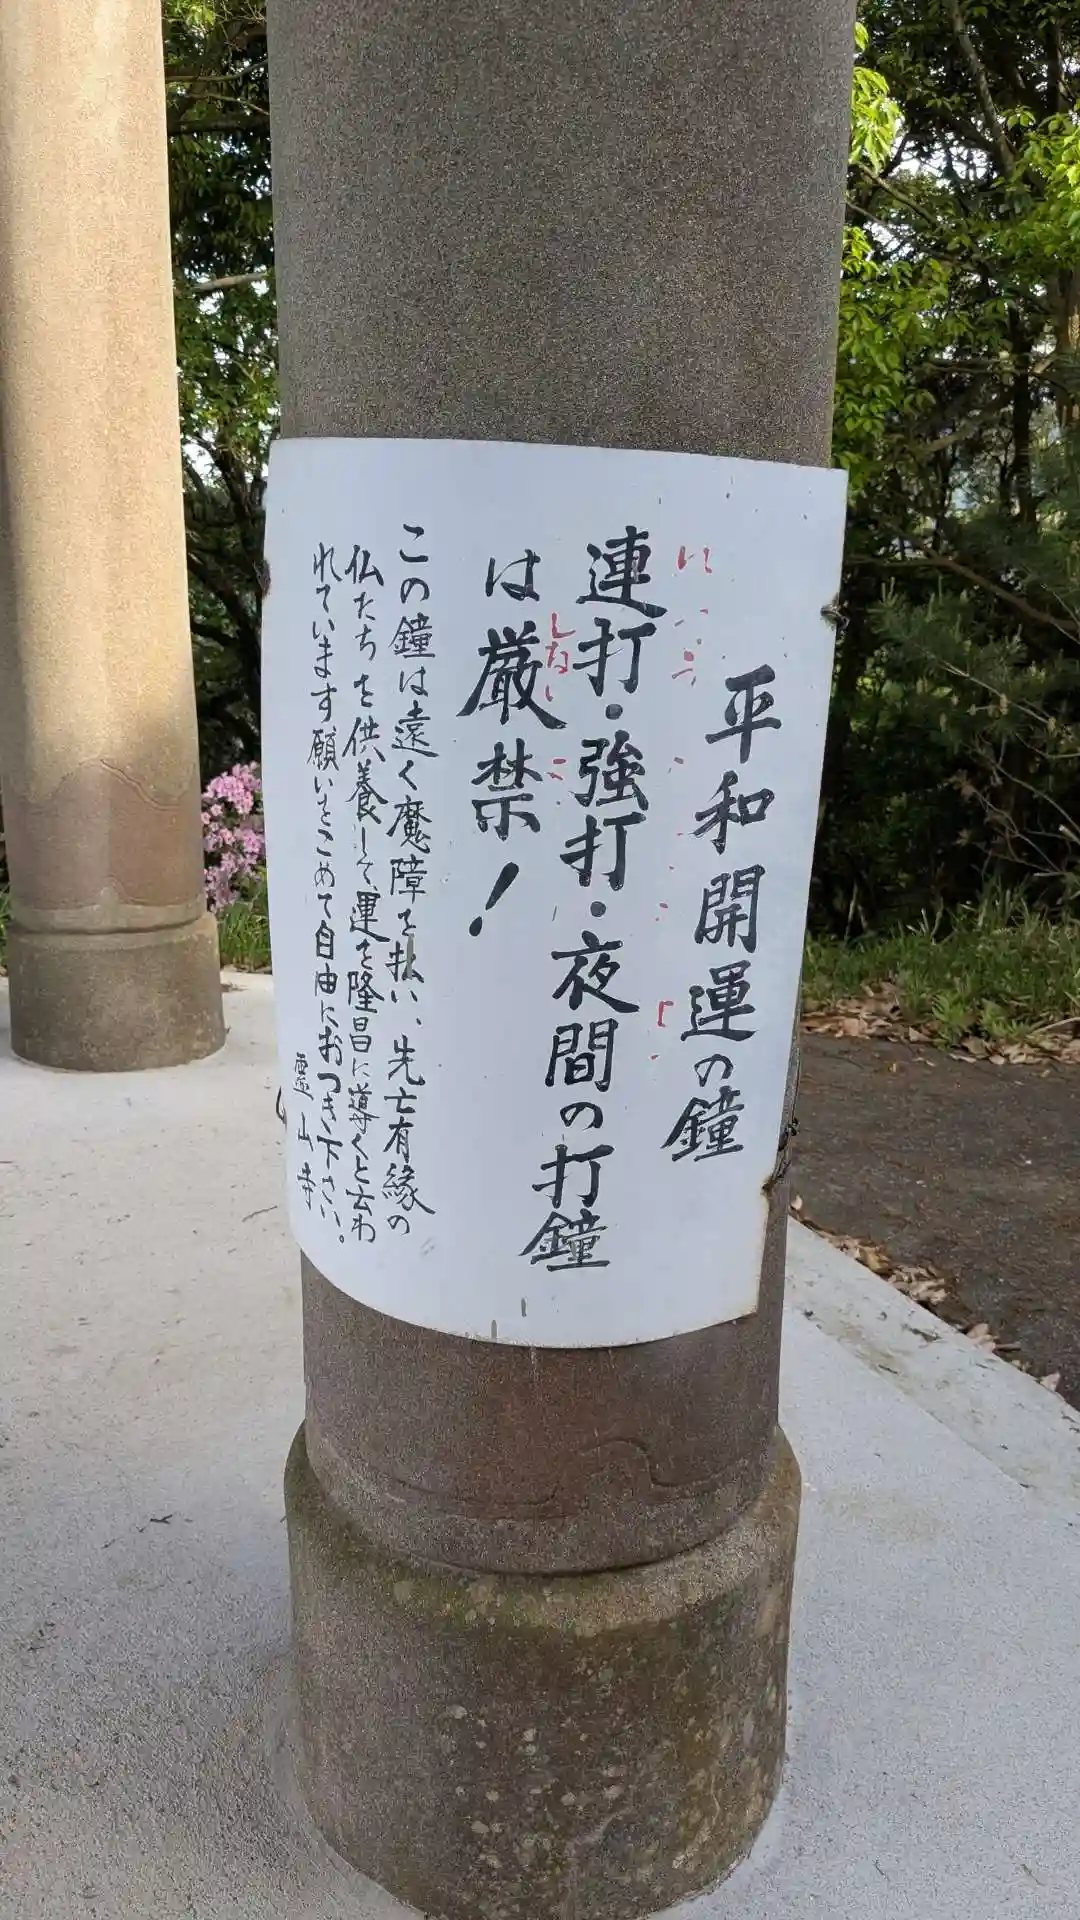 平和開運の鐘
連打・強打・夜間の打鐘
は厳禁!
この鐘は遠く魔障を払い、先亡有縁の
仏たちを供養して、運を隆昌に導くと云わ
れています願いをこめて自由におつき下さい。
霊山寺